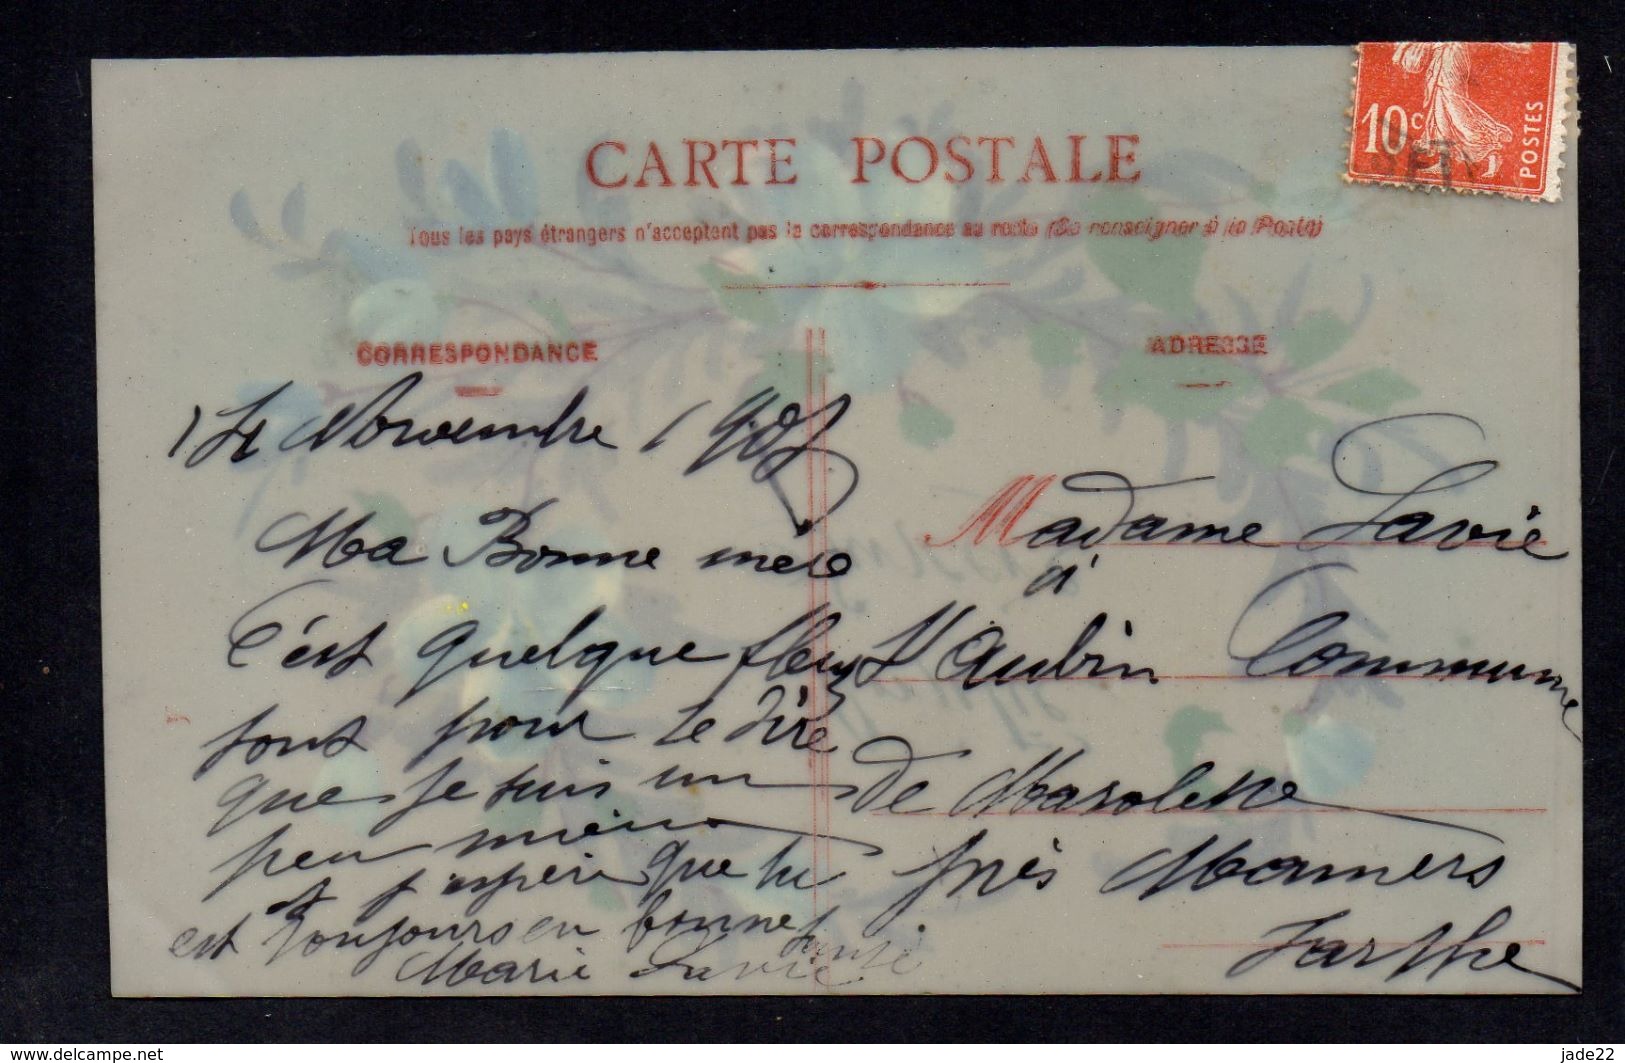 CARTE POSTALE
Tous les pays étrangers n'acceptent pas la correspondance au recto (Se renseigner à la Poste)
10 c
POSTES
CORRESPONDANCE
14 Novembre 190
Ma Bonne mère
C'est quelque fleur
sont pour te dire
que je suis un
peu mieux
et j'espère que tu
est toujours en bonne
santé
Marie Lavie
ADRESSE
Madame Lavie
à
St Aubin Commune
De
près Mamers
Sarthe
www.delcampe.net
jade22